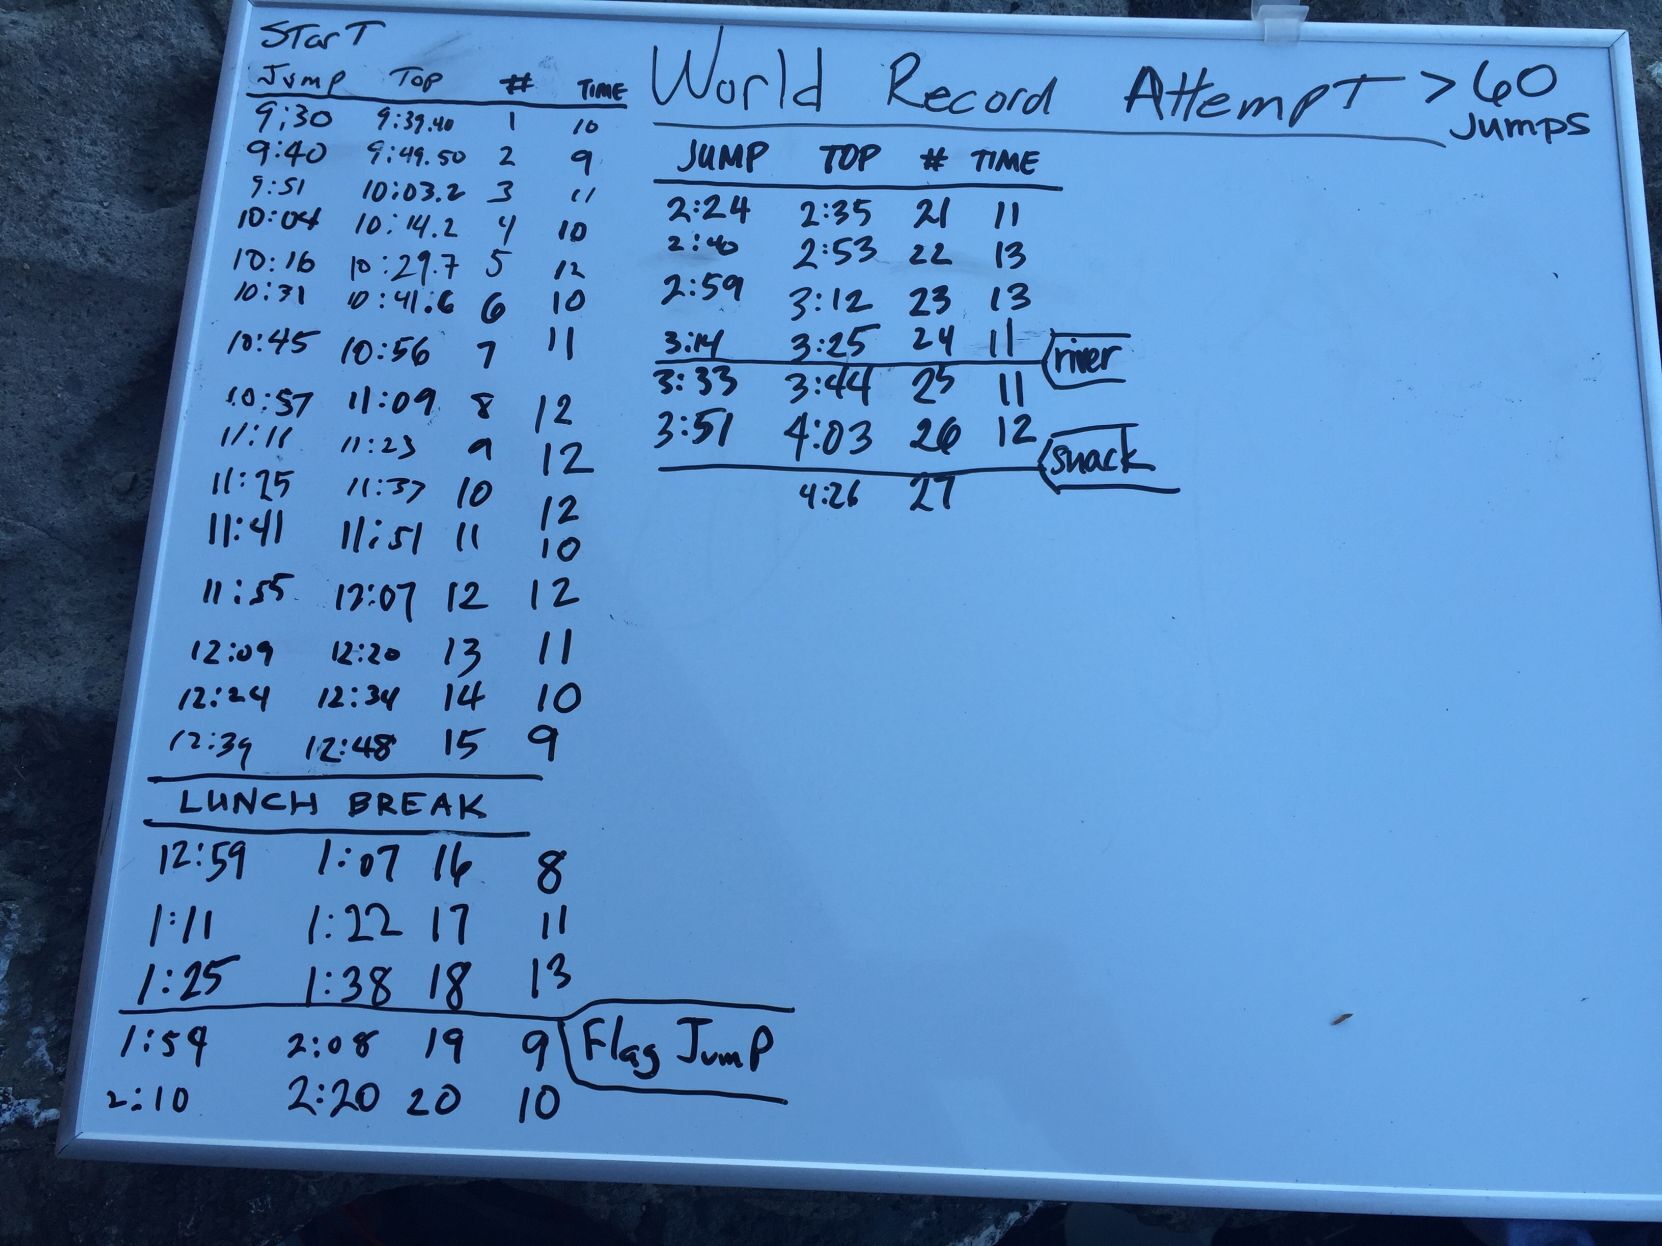 Start
Jump Top # TIME
9:30 9:39.40 1 10
9:40 9:49.50 2 9
9:51 10:03.2 3 11
10:04 10:14.2 4 10
10:16 10:29.7 5 12
10:31 10:41.6 6 10
10:45 10:56 7 11
10:57 11:09 8 12
11:11 11:23 9 12
11:25 11:37 10 12
11:41 11:51 11 10
11:55 12:07 12 12
12:09 12:20 13 11
12:24 12:34 14 10
12:39 12:48 15 9
LUNCH BREAK
12:59 1:07 16 8
1:11 1:22 17 11
1:25 1:38 18 13
Flag Jump
1:59 2:08 19 9
2:10 2:20 20 10
World Record Attempt > 60
Jumps
JUMP TOP # TIME
2:24 2:35 21 11
2:40 2:53 22 13
2:59 3:12 23 13
3:14 3:25 24 11
river
3:33 3:44 25 11
3:51 4:03 26 12
snack
4:26 27